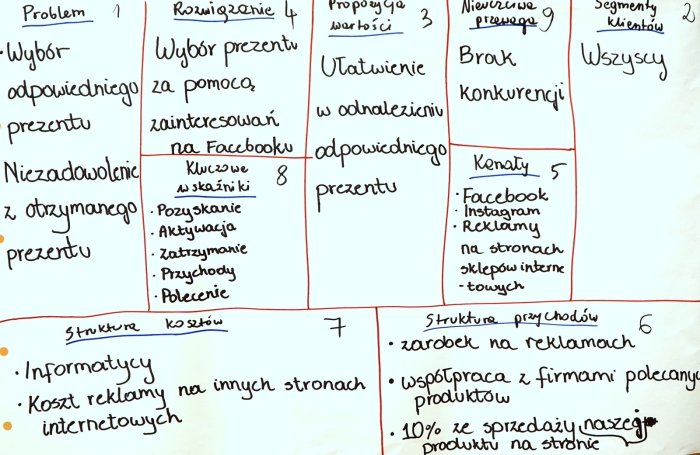 Problem 1
· Wybór
odpowiedniego
prezentu
Niezadowolenie
z otrzymanego
prezentu
Rozwiązanie 4
Wybór prezentu
za pomocą
zainteresowań
na Facebooku
Kluczowe 8
wskaźniki
· Pozyskanie
· Aktywacja
· Zatrzymanie
· Przychody
· Polecenie
Propozycja 3
wartości
Ułatwienie
w odnalezieniu
odpowiedniego
prezentu
Nieuczciwa 9
przewaga
Brak
konkurencji
Kanały 5
· Facebook
· Instagram
· Reklamy
na stronach
sklepów interne
-towych
Segmenty 2
klientów
Wszyscy
Struktura kosztów 7
· Informatycy
· Koszt reklamy na innych stronach
internetowych
Struktura przychodów 6
· zarobek na reklamach
· współpraca z firmami polecany
produktów
· 10% ze sprzedaży naszego
produktu na stronie